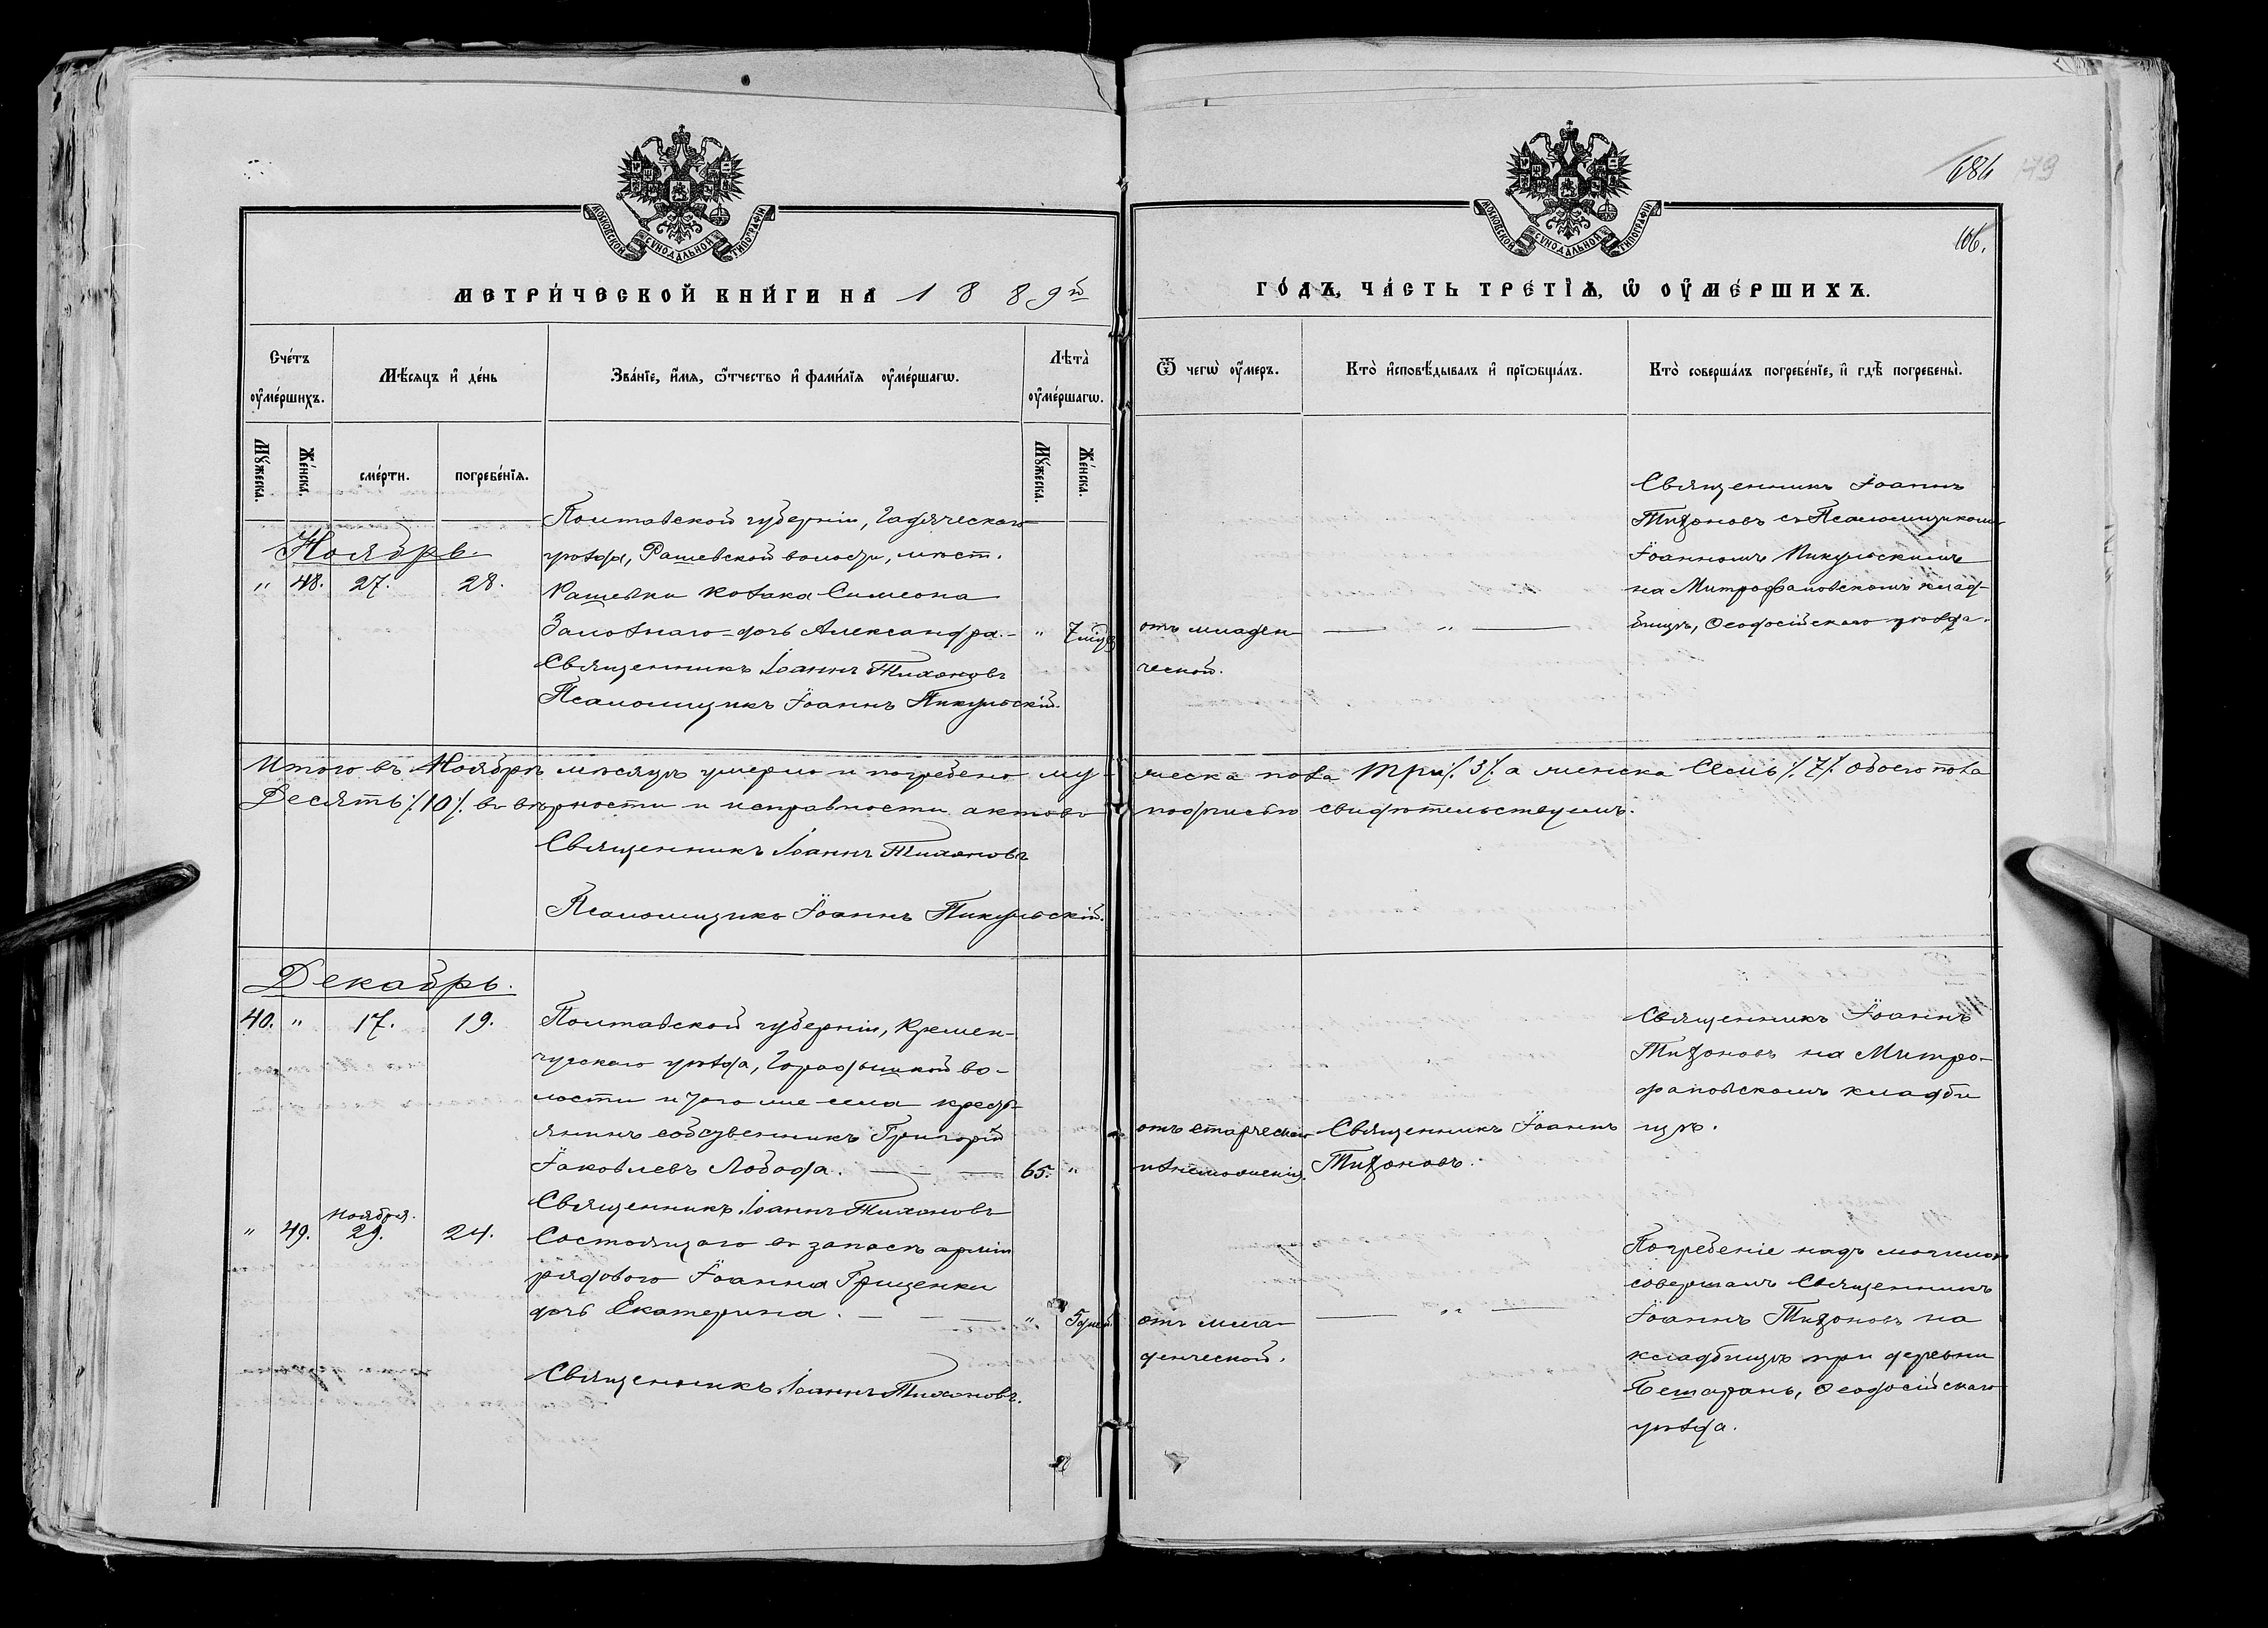 684
106.
МОСКОВСКОЙ СѴНОДАЛЬНОЙ ТИПОГРАФІИ
МОСКОВСКОЙ СѴНОДАЛЬНОЙ ТИПОГРАФІИ
МЕТРИ́ЧЕСКОЙ КНИ́ГИ НА 1889й
ГО́ДЪ, ЧА́СТЬ ТРЕ́ТІѦ, Ѡ҆ ОУ҆МЕ́РШИХЪ.
Сче́тъ оу҆ме́ршихъ.
Мѣ́сяцъ и҆ де́нь
Зва́нїе, и҆́мѧ, ѻ҆́тчество и҆ фами́лїѧ оу҆ме́ршагѡ.
Лѣта̀ оу҆ме́ршагѡ.
Ѿ чегѡ̀ оу҆́меръ.
Кто̀ и҆сповѣ́дывалъ и҆ прїѡбща́лъ.
Кто̀ соверша́лъ погребе́нїе, и҆ гдѣ̀ погребены̀.
Мꙋ́жеска.
Же́нска.
сме́рти.
погребе́нїѧ.
Мꙋ́жеска.
Же́нска.
Ноябрь.
" 48. 27. 28.
Полтавской губерніи, Гадяческаго
уѣзда, Рашевской волости, мѣст.
Рашевки козака Симеона
Заловнаго дочь Александра. " 7
Священникъ Іоаннъ Тихоновъ
Псаломщикъ Іоаннъ Пикульскій.
отъ младен
ческой.
— " —
Священникъ Іоаннъ
Тихоновъ съ Псаломщикомъ
Іоанномъ Пикульскимъ
на Митрофановскомъ клад-
бищѣ, Ѳеодосійскаго уѣзда.
Итого въ Ноябрѣ мѣсяцѣ умерло и погребено му-
жеска пола три ./. 3 ./. а женска Семь ./. 7 ./. обоего пола
Десять ./. 10 ./. въ вѣрности и исправности актовъ
подписью свидѣтельствуемъ.
Священникъ Іоаннъ Тихоновъ
Псаломщикъ Іоаннъ Пикульскій.
Декабрь.
40. " 17. 19.
Полтавской губерніи, Кремен-
чугскаго уѣзда, Городишкой во-
лости и того же села кресть-
янинъ собственникъ Григорій
Іаковлевъ Лобода. — — — 65. "
Священникъ Іоаннъ Тихоновъ
отъ старческаго
изнеможенія.
Священникъ Іоаннъ
Тихоновъ.
Священникъ Іоаннъ
Тихоновъ на Митро-
фановскомъ кладби
щѣ.
" 49. Ноября. 29. 24.
Состоящаго въ запасѣ арміи
рядового Іоанна Гриценки
дочь Екатерина. — — — " 5 дней.
Священникъ Іоаннъ Тихоновъ.
отъ мла-
денческой.
— " —
Погребеніе надъ могилою
совершалъ Священникъ
Іоаннъ Тихоновъ на
кладбищѣ при деревни
Бешарань, Ѳеодосійскаго
уѣзда.